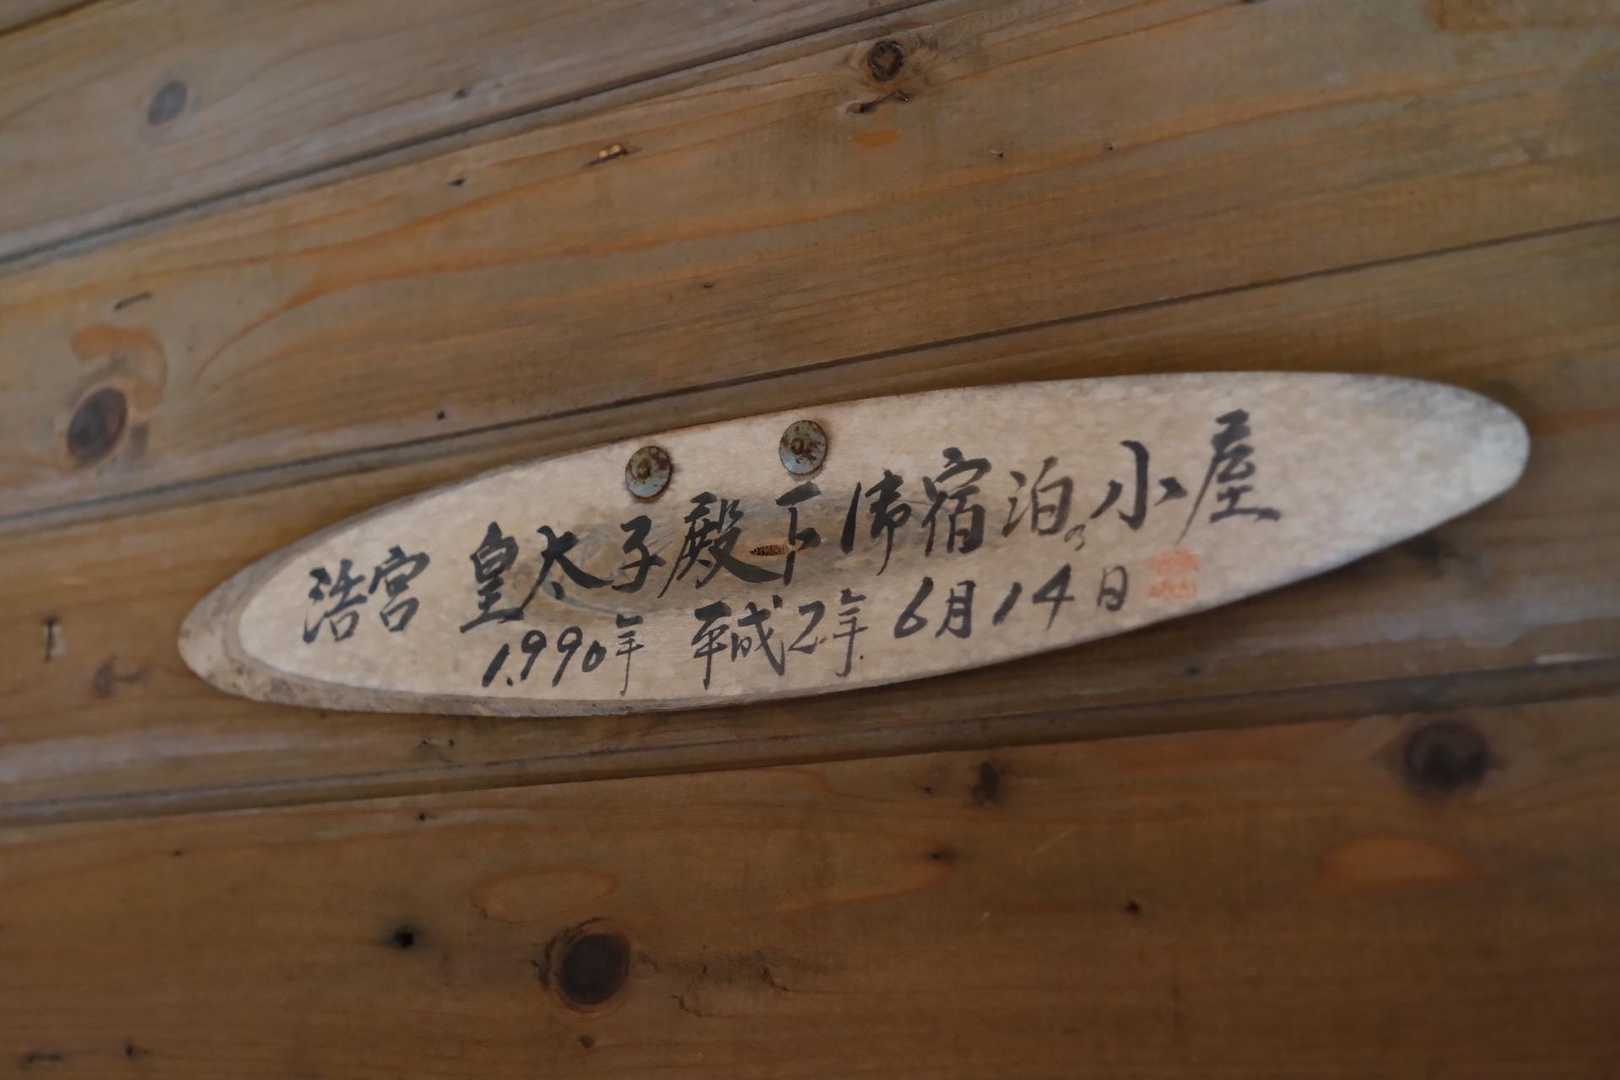 浩宮 皇太子殿下御宿泊の小屋
1.990年 平成2年 6月14日